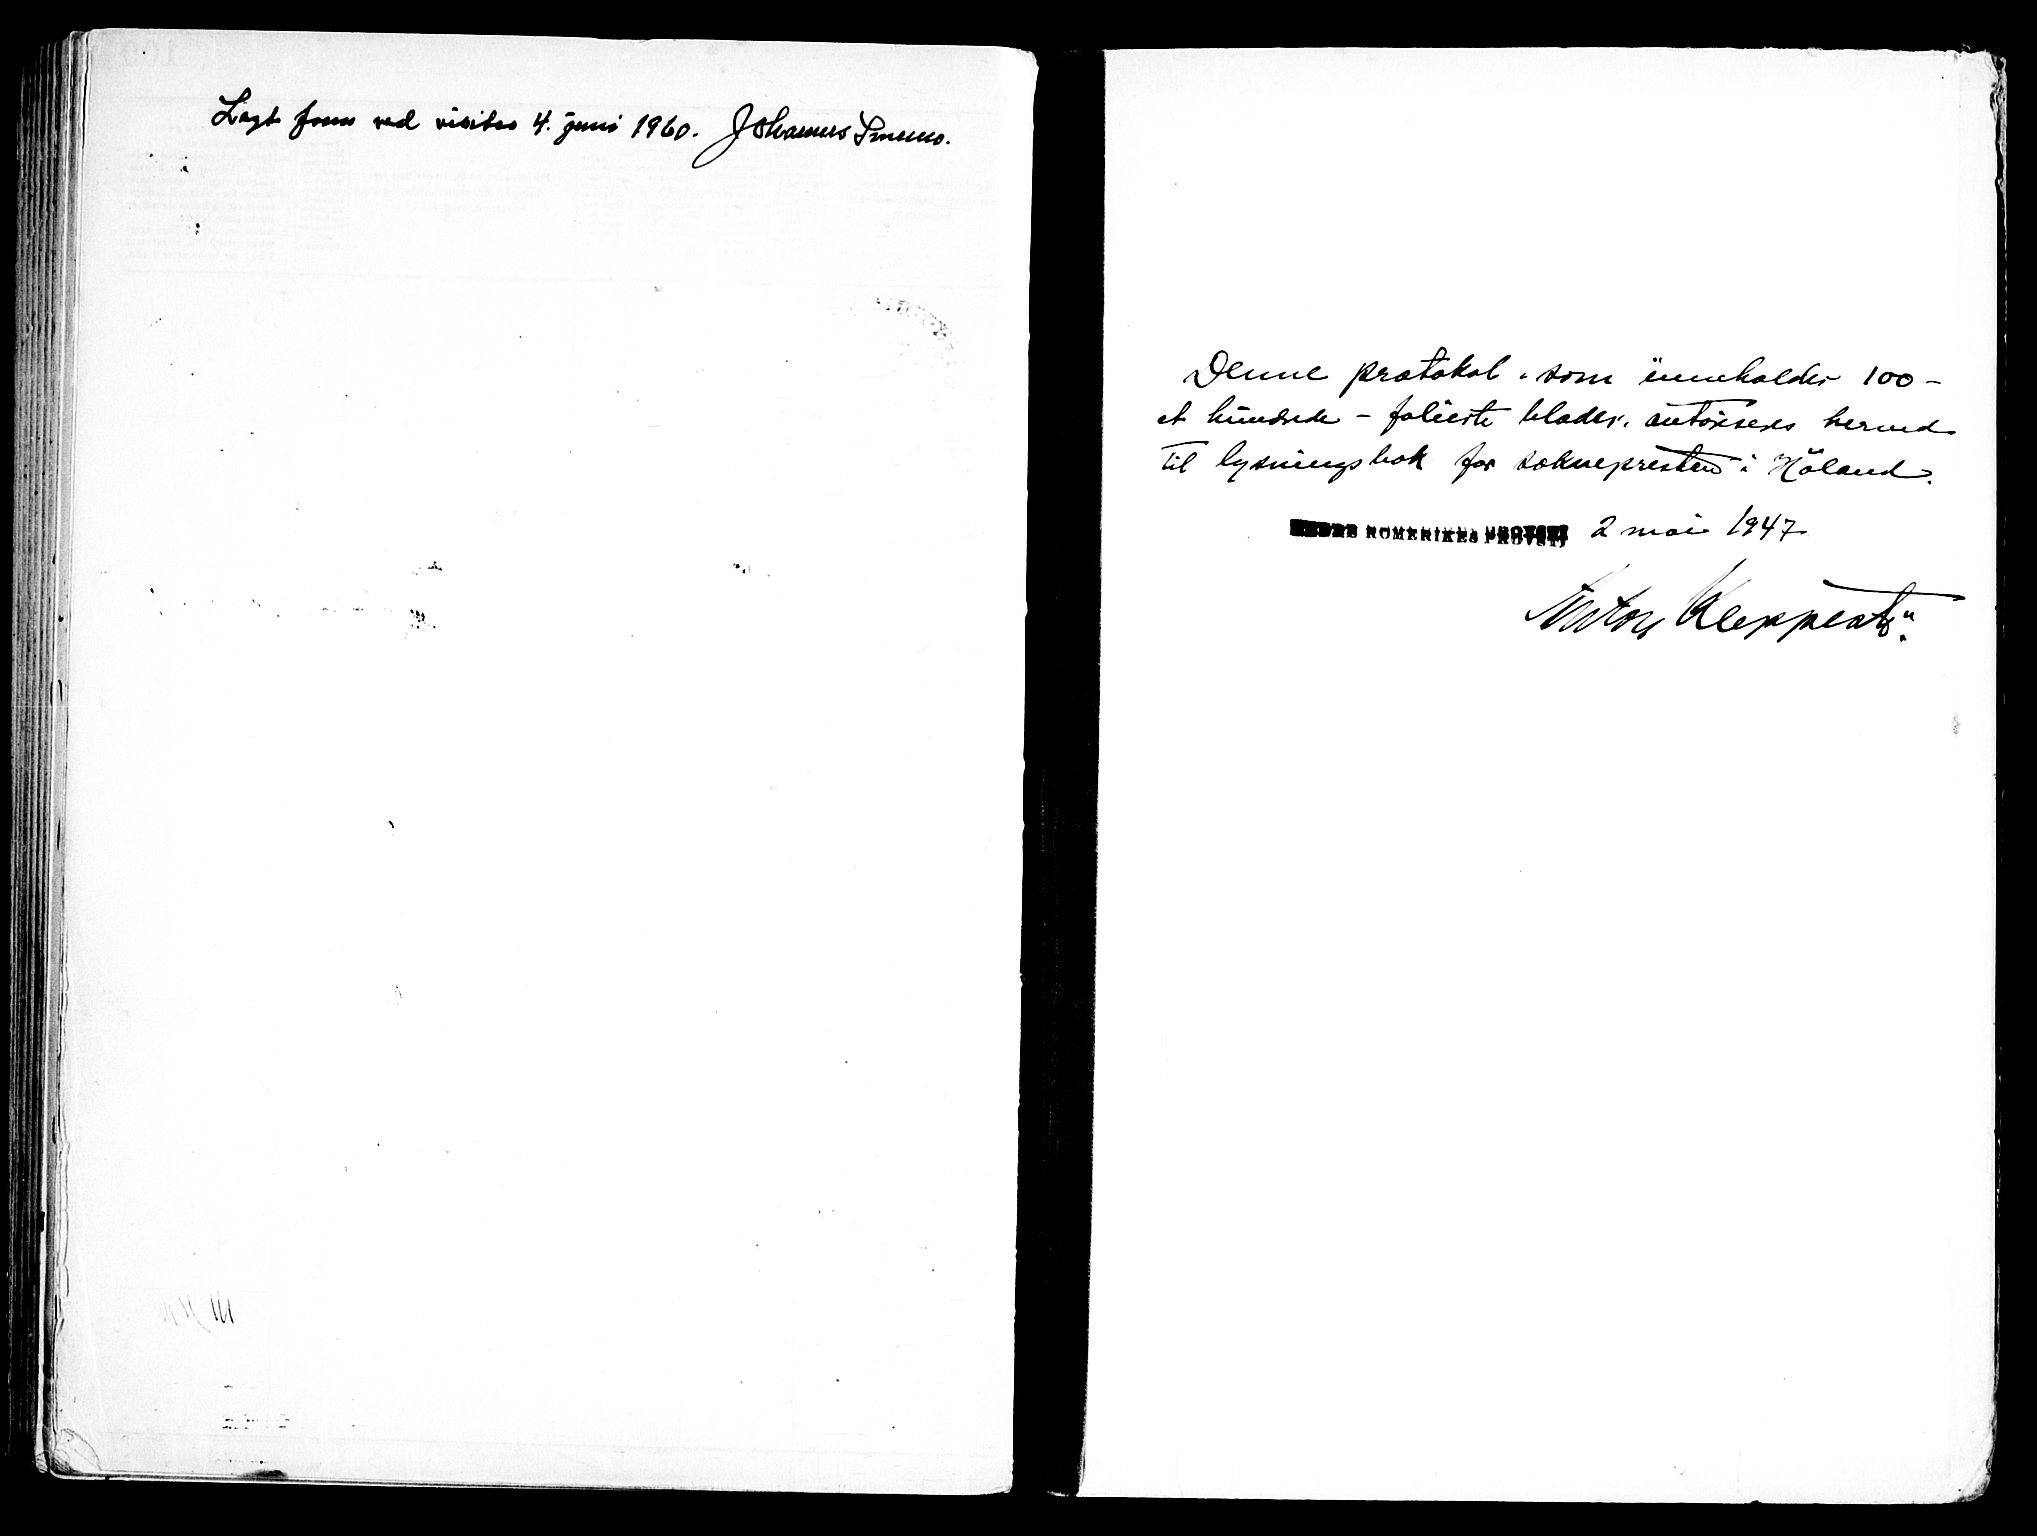 Lagt fram ved visitas 4. juni 1960. Johannes Smemo.
Denne protokol, som inneholder 100 -
et hundrede - folierte blader, autoriseres herved
til lysningsbok for soknepresten i Höland.
NEDRE ROMERIKES PROVSTI 2 mai 1947
Anton Kleppestö